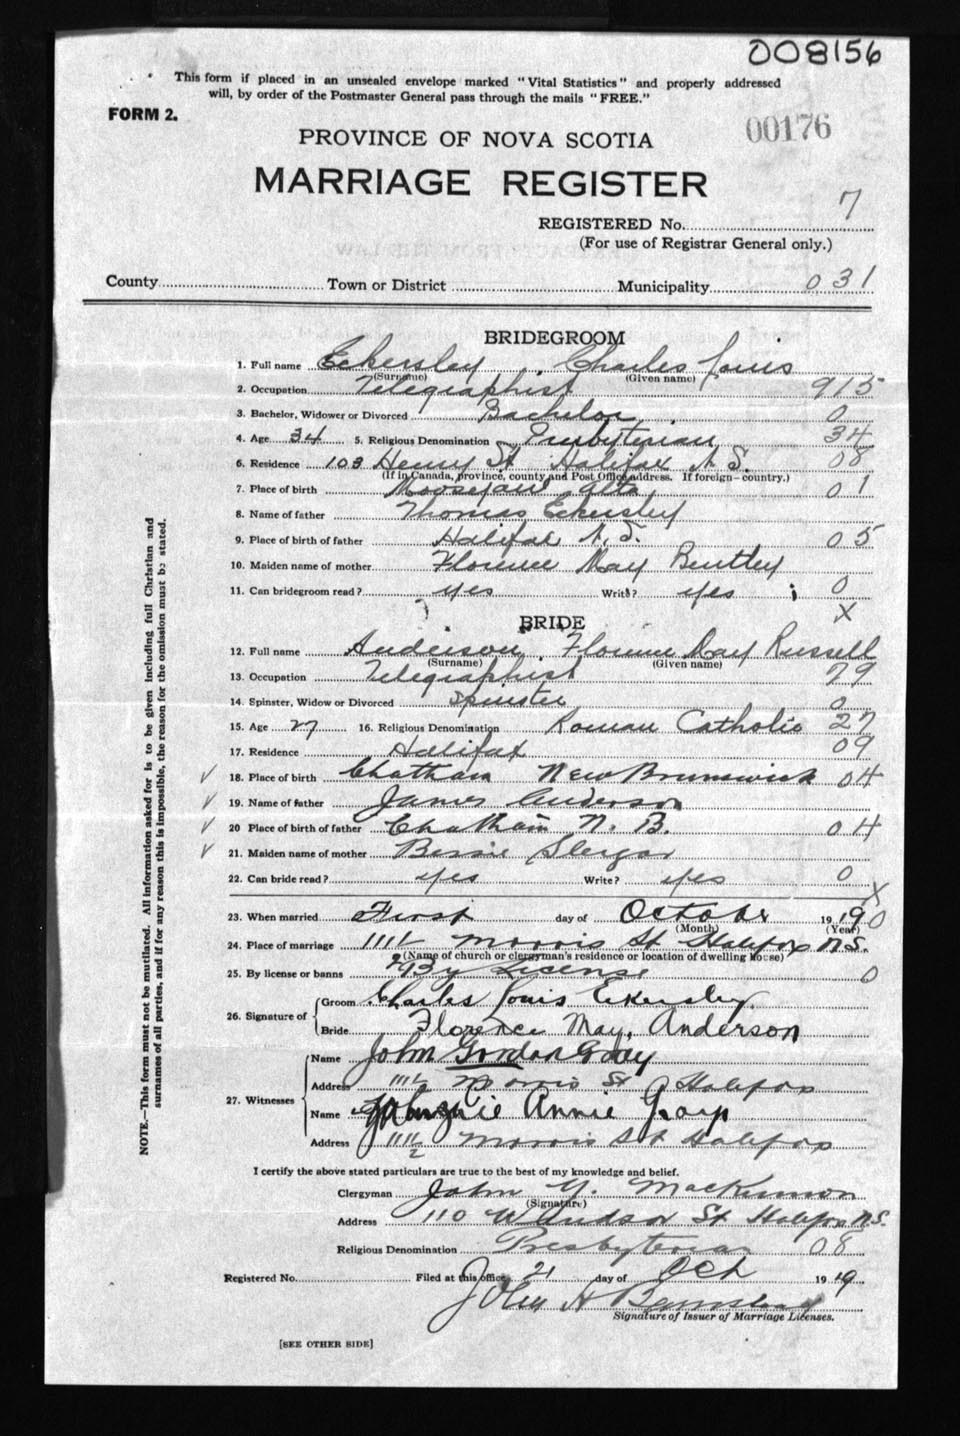 008156
This form if placed in an unsealed envelope marked "Vital Statistics" and properly addressed
will, by order of the Postmaster General pass through the mails "FREE."
FORM 2.
00176
PROVINCE OF NOVA SCOTIA
MARRIAGE REGISTER
REGISTERED No. 7
(For use of Registrar General only.)
County Town or District Municipality 031
BRIDEGROOM
1. Full name Eckersley Charles Louis
(Surname) (Given name)
2. Occupation Telegraphist 915
3. Bachelor, Widower or Divorced Bachelor 0
4. Age 34 5. Religious Denomination Presbyterian 34
6. Residence 103 Henry St Halifax N.S. 08
(If in Canada, province, county and Post Office address. If foreign—country.)
7. Place of birth Moosejaw Alta 01
8. Name of father Thomas Eckersley
9. Place of birth of father Halifax N.S. 05
10. Maiden name of mother Florence May Bentley
11. Can bridegroom read? yes Write? yes 0
X
BRIDE
12. Full name Anderson, Florence May Russell
(Surname) (Given name)
13. Occupation Telegraphist 79
14. Spinster, Widow or Divorced Spinster 0
15. Age 27 16. Religious Denomination Roman Catholic 27
17. Residence Halifax 09
18. Place of birth Chatham New Brunswick 04
19. Name of father James Anderson
20 Place of birth of father Chatham N. B. 04
21. Maiden name of mother Bessie
22. Can bride read? yes Write? yes 0
X
23. When married First day of October 1919 0
(Month) (Year)
24. Place of marriage 111½ Morris St Halifax N.S.
(Name of church or clergyman's residence or location of dwelling house)
25. By license or banns By License 0
26. Signature of Groom Charles Louis Eckersley
Bride Florence May Anderson
27. Witnesses
Name John Gordon Gray
Address 111½ Morris St Halifax
Name Annie Gray
Address 111½ Morris St Halifax
I certify the above stated particulars are true to the best of my knowledge and belief.
Clergyman John Y. MacKinnon
(Signature)
Address 110 Windsor St Halifax N.S.
Religious Denomination Presbyterian 08
Registered No. Filed at this office 21 day of Oct 1919
John H
Signature of Issuer of Marriage Licenses.
[SEE OTHER SIDE]
NOTE.—This form must not be mutilated. All information asked for is to be given including full Christian and
surnames of all parties, and if for any reason this is impossible, the reason for the omission must be stated.